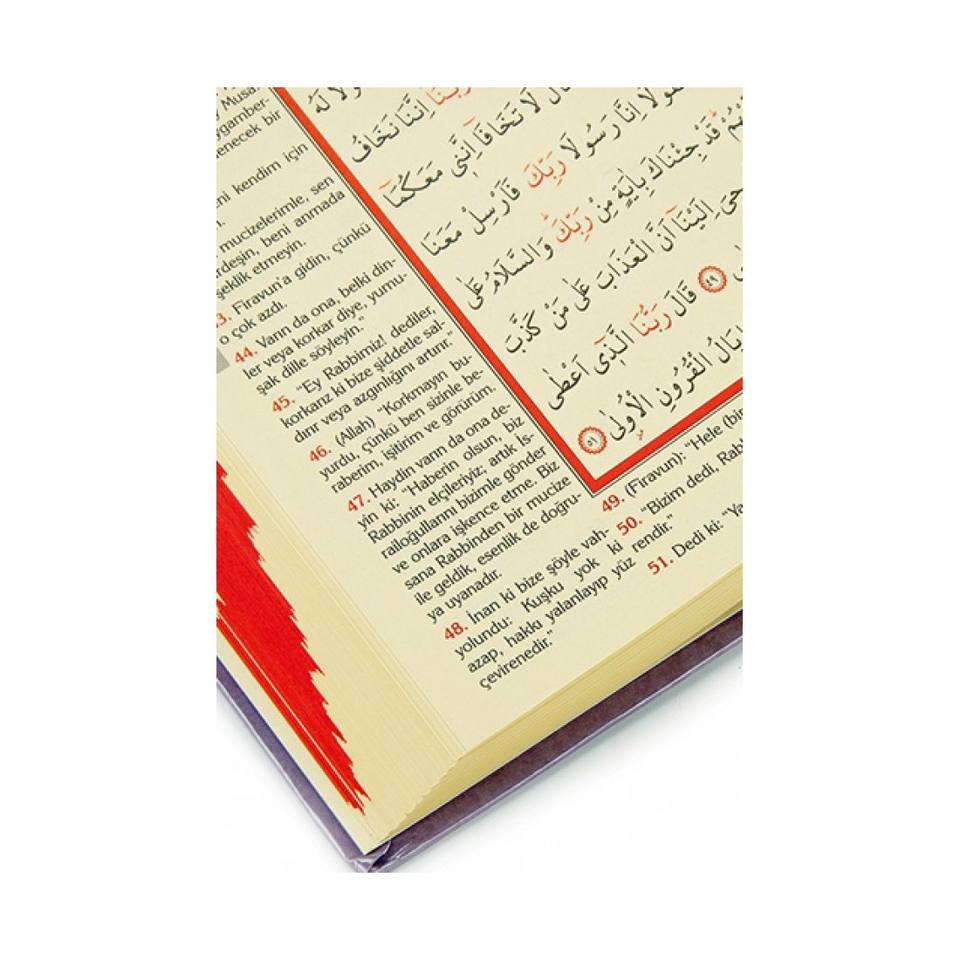 Musa.
ygamber-
lenecek bir
kendim için
mucizelerimle, sen
beni anmada
şeklik etmeyin.
Firavun'a gidin, çünkü
o çok azdı.
44. Varın da ona, belki din-
ler veya korkar diye, yumu-
şak dille söyleyin."
45. "Ey Rabbimiz! dediler,
korkarız ki bize şiddetle sal-
dırır veya azgınlığını artırır."
46. (Allah) "Korkmayın bu-
yurdu, çünkü ben sizinle be-
raberim, işitirim ve görürüm.
47. Haydin varın da ona de-
yin ki: "Haberin olsun, biz
Rabbinin elçileriyiz; artık İs-
railoğullarını bizimle gönder
ve onlara işkence etme. Biz
sana Rabbinden bir mucize
ile geldik, esenlik de doğru-
ya uyanadır.
48. İnan ki bize şöyle vah-
yolundu: Kuşku yok ki
azap, hakkı yalanlayıp yüz
çevirenedir."
رَبَّنَا اِنَّنَا نَخَافُ
لَا تَخَافَا اِنَّنِى مَعَكُمَا
اِنَّا رَسُولَا رَبِّكَ فَاَرْسِلْ مَعَنَا
قَدْ جِئْنَاكَ بِاٰيَةٍ مِنْ رَبِّكَ وَالسَّلَامُ عَلٰى
اِلَيْنَا اَنَّ الْعَذَابَ عَلٰى مَنْ كَذَّبَ
٤٩ قَالَ رَبُّنَا الَّذِى اَعْطٰى
بَالُ الْقُرُونِ الْاُولٰى ٥١
49. (Firavun): "Hele (bir
50. "Bizim dedi, Rab
rendir."
51. Dedi ki: "Ya